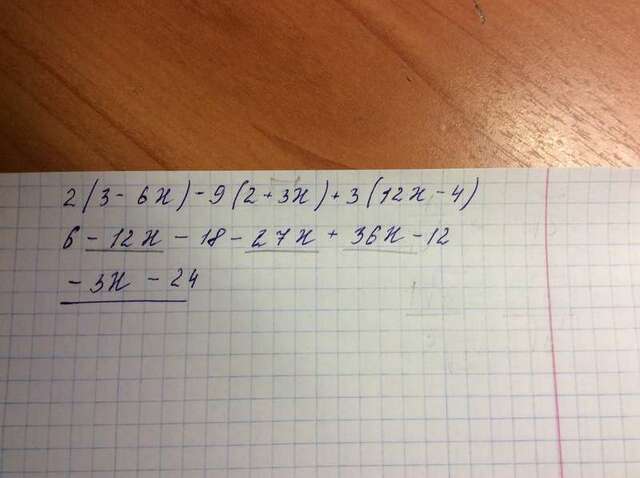 2(3-6x)-9(2+3x)+3(12x-4)
6-12x-18-27x+36x-12
-3x-24